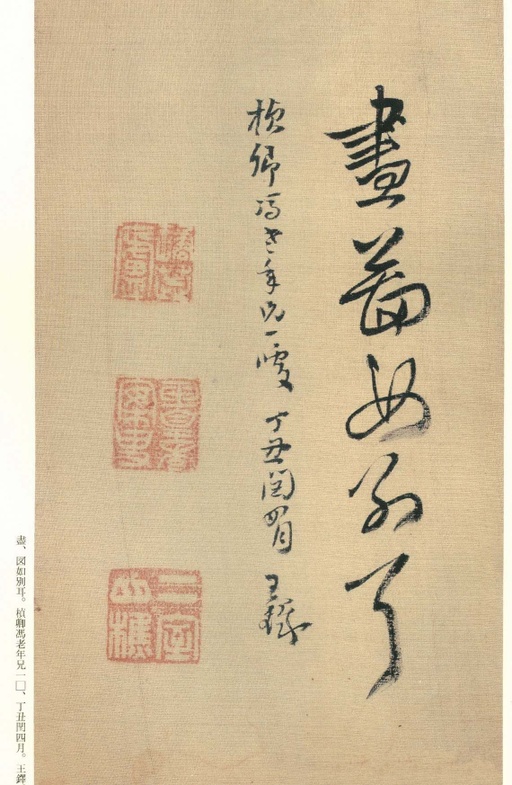 盡圖如別耳
楨卿馮老年兄一 丁丑閏四月 王鐸
二室山樵
盡、図如別耳。楨卿馮老年兄一□、丁丑閏四月。王鐸